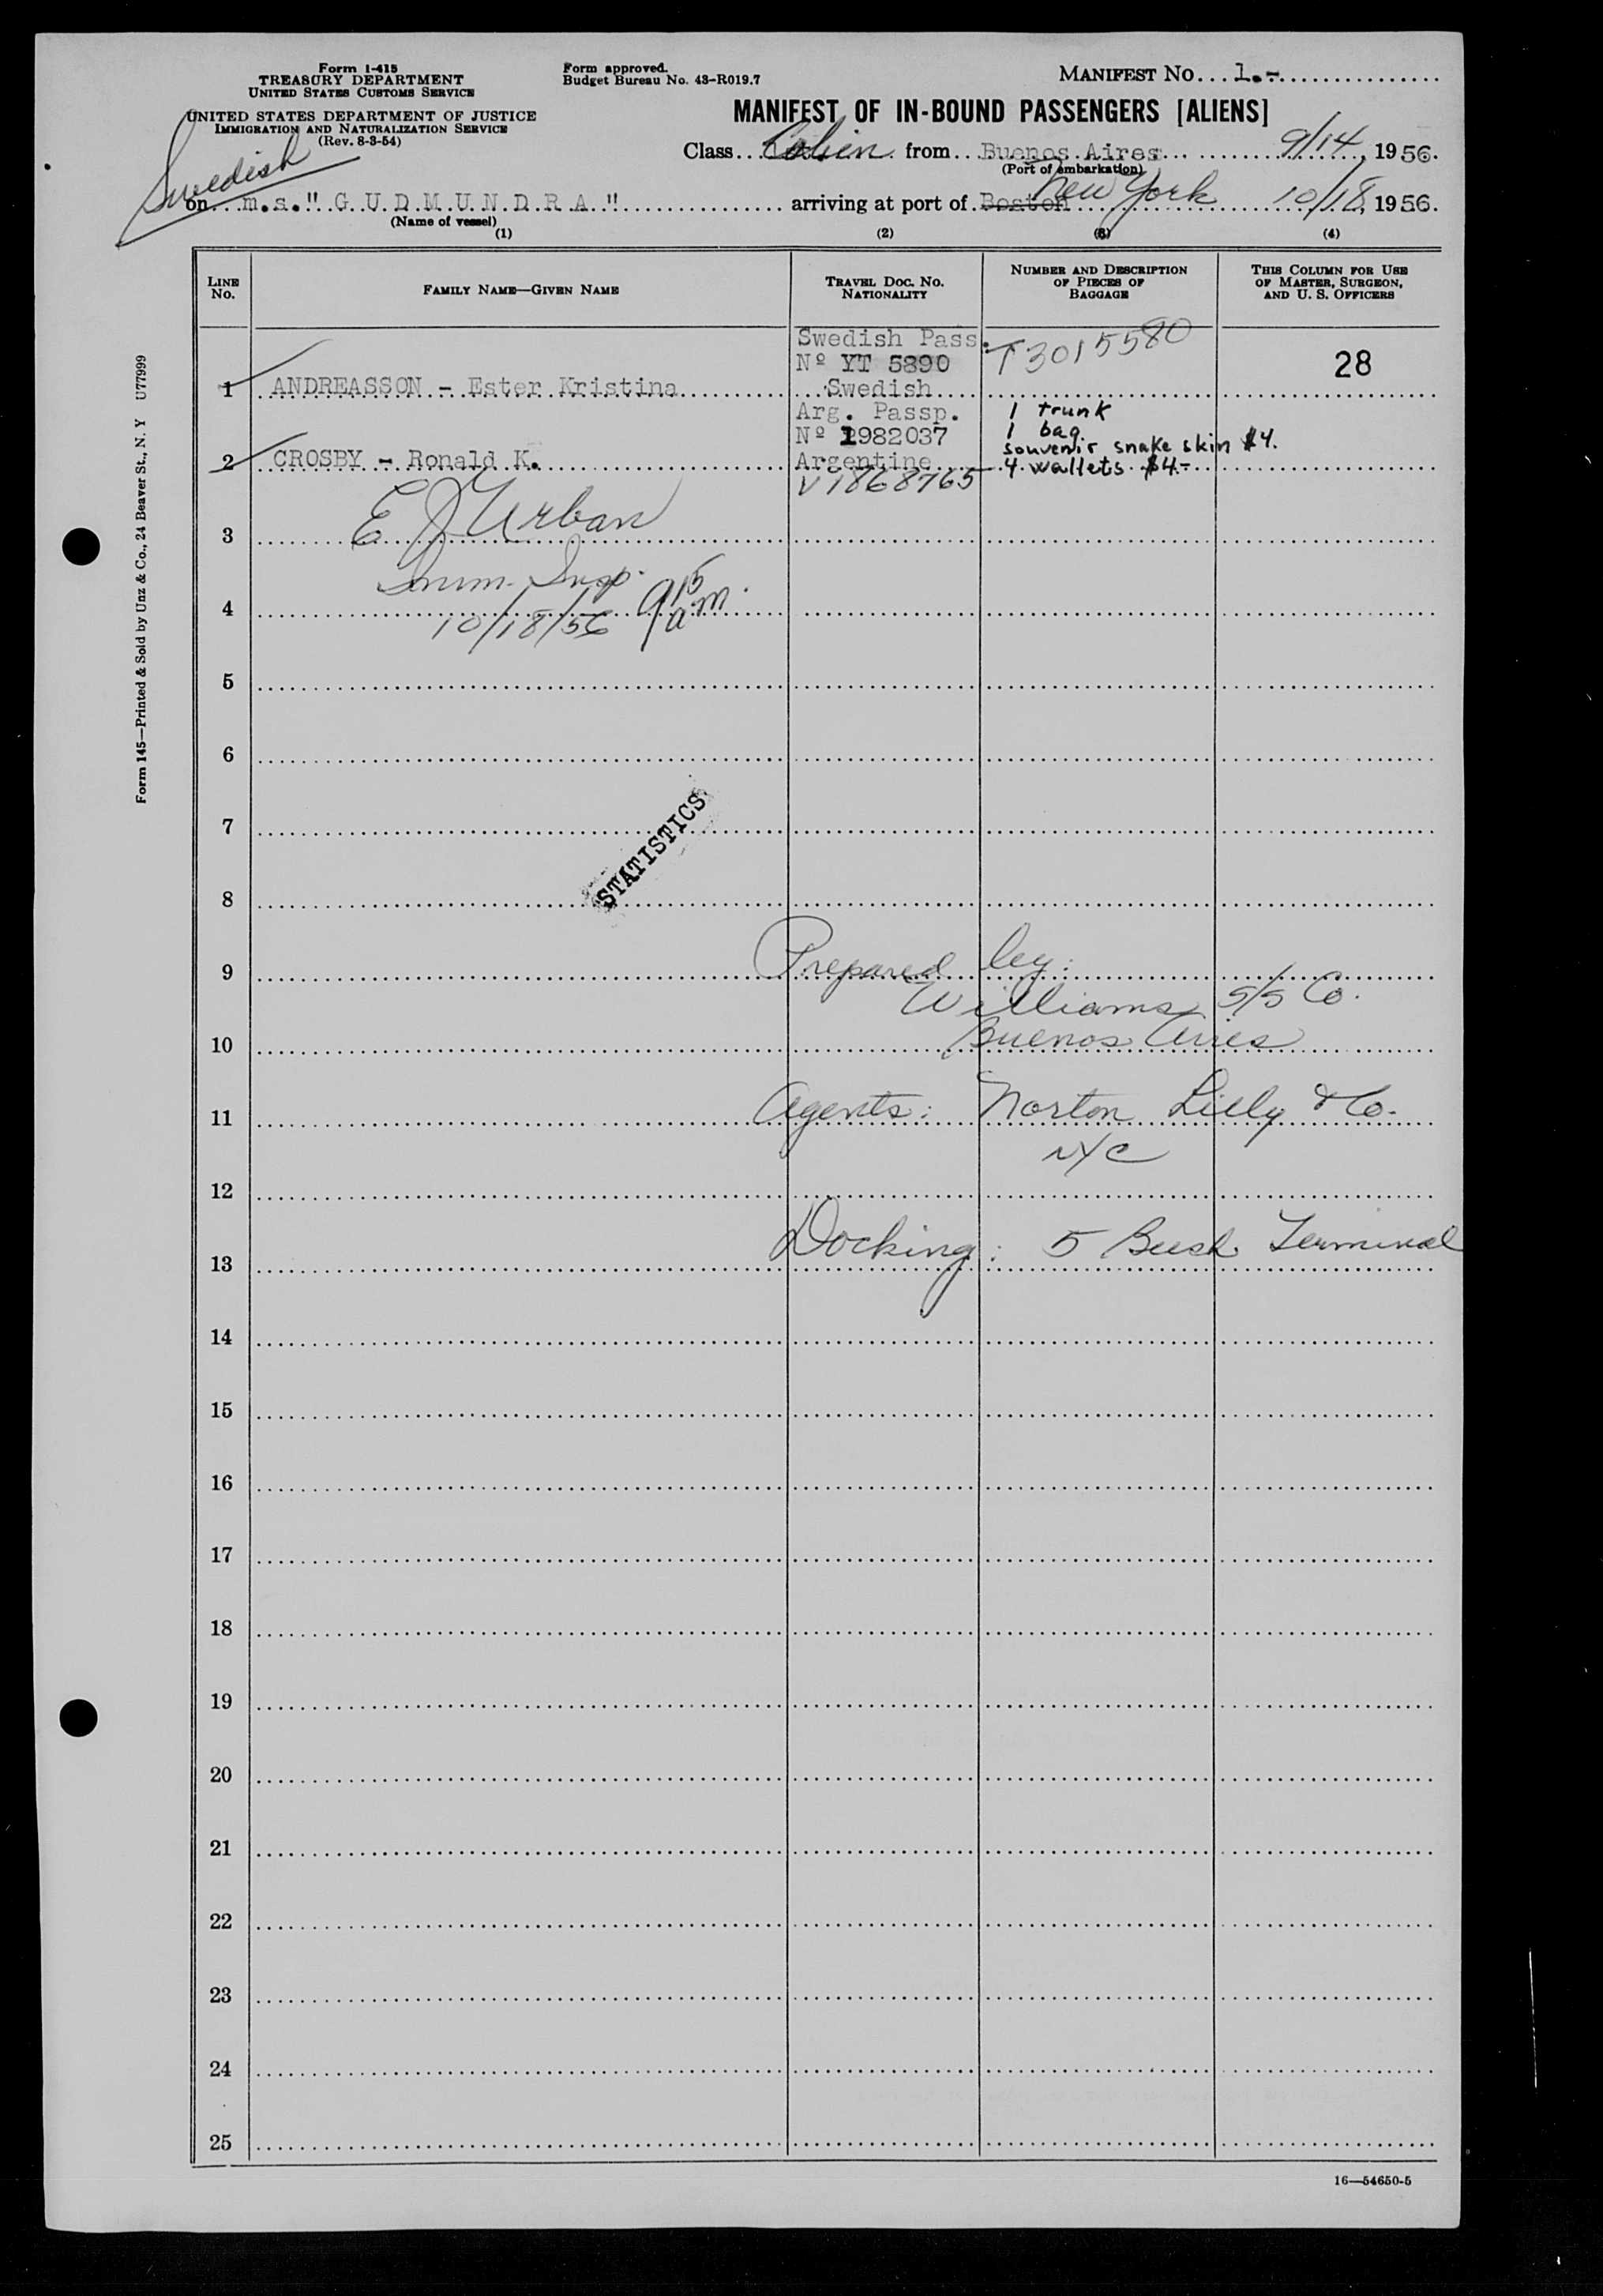 Form I-415
TREASURY DEPARTMENT
UNITED STATES CUSTOMS SERVICE
UNITED STATES DEPARTMENT OF JUSTICE
IMMIGRATION AND NATURALIZATION SERVICE
(Rev. 8-3-54)
Form approved.
Budget Bureau No. 43-R019.7
MANIFEST NO. 1.-
MANIFEST OF IN-BOUND PASSENGERS [ALIENS]
Class Cabin from Buenos Aires 9/14, 1956.
(Port of embarkation)
Swedish
on m.s. "G U D M U N D R A" arriving at port of Boston New York 10/18, 1956.
(Name of vessel)
(1) (2) (3) (4)
LINE NO. FAMILY NAME—GIVEN NAME TRAVEL DOC. NO. NATIONALITY NUMBER AND DESCRIPTION OF PIECES OF BAGGAGE THIS COLUMN FOR USE OF MASTER, SURGEON, AND U. S. OFFICERS
Swedish Pass.
Nº YT 5890 T3015580 28
1 ANDREASSON - Ester Kristina Swedish
Arg. Passp. 1 trunk
Nº 1982037 1 bag
souvenir snake skin $4.
2 CROSBY - Ronald K. Argentine 4 wallets $4.-
V1868765
E J Urban
3
Imm. Insp.
4
10/18/56 9 15 a.m.
5
6
7
STATISTICS
8
9 Prepared by:
Williams S/S Co.
10 Buenos Aires
11 Agents: Norton Lilly & Co.
NYC
12
13 Docking: 5 Bush Terminal
14
15
16
17
18
19
20
21
22
23
24
25
16—54650-5
Form 145—Printed & Sold by Unz & Co., 24 Beaver St., N. Y U77999